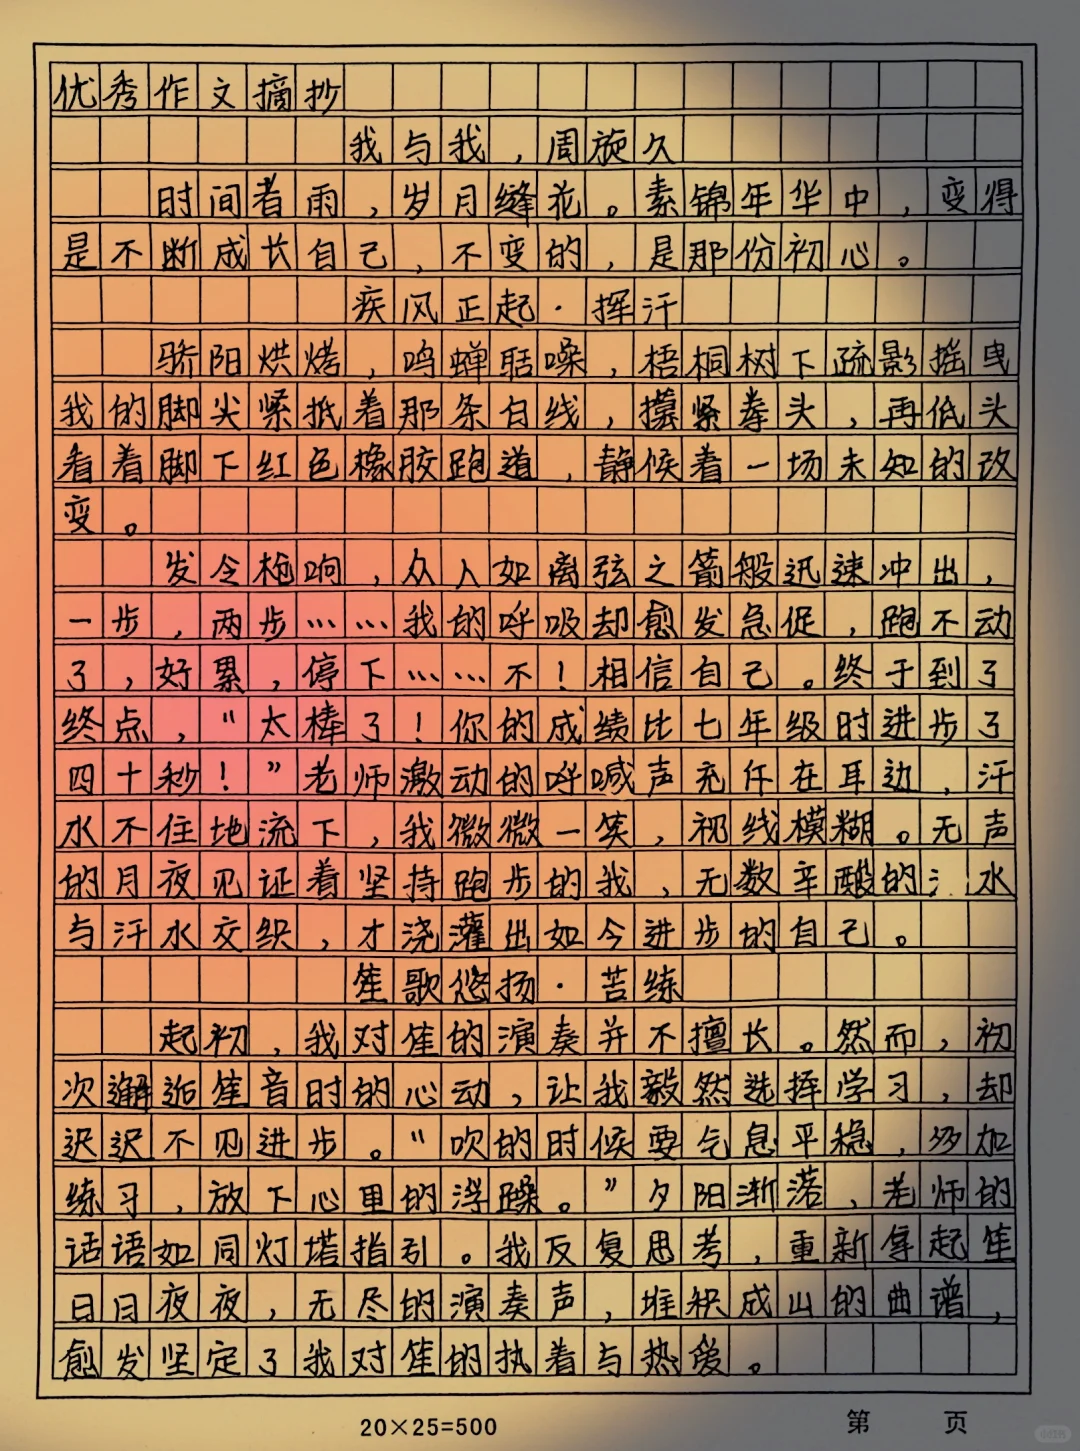 优秀作文摘抄
我与我，周旋久
时间煮雨，岁月缝花。素锦年华中，变得
是不断成长自己，不变的，是那份初心。
疾风正起·挥汗
骄阳烘烤，鸣蝉聒噪，梧桐树下疏影摇曳
我的脚尖紧抵着那条白线，攥紧拳头，再低头
看着脚下红色橡胶跑道，静候着一场未知的改
变。
发令枪响，众人如离弦之箭般迅速冲出，
一步，两步……我的呼吸却愈发急促，跑不动
了，好累，停下……不！相信自己。终于到了
终点，“太棒了！你的成绩比七年级时进步了
四十秒！”老师激动的呼喊声充斥在耳边，汗
水不住地流下，我微微一笑，视线模糊。无声
的月夜见证着坚持跑步的我，无数辛酸的 水
与汗水交织，才浇灌出如今进步的自己。
笙歌悠扬·苦练
起初，我对笙的演奏并不擅长。然而，初
次邂逅笙音时的心动，让我毅然选择学习，却
迟迟不见进步。“吹的时候要气息平稳，多加
练习，放下心里的浮躁。”夕阳渐落，老师的
话语如同灯塔指引。我反复思考，重新拿起笙
日日夜夜，无尽的演奏声，堆积成山的曲谱，
愈发坚定了我对笙的执着与热爱。
20×25=500
第 页
小红书